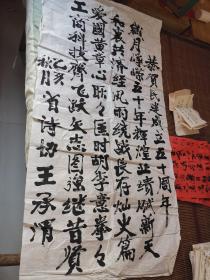 恭贺民进成立五十周年
岁月峥嵘五十年辉煌业绩赋新天
和衷共济经风雨统战长存灿火篇
爱国心耿耿匡时意拳拳
工科技齐飞跃矢志图强继昔贤
乙亥秋月首诗初王承渭